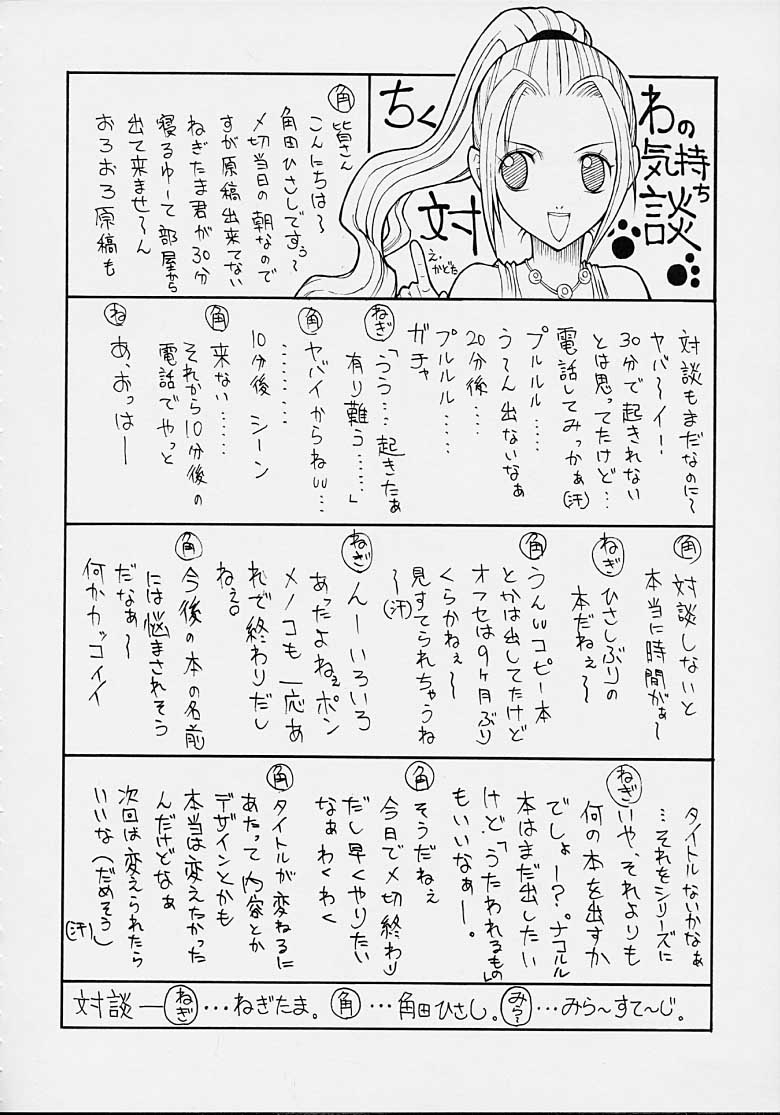 ちくわの気持ち
対談
え・かどた
角 皆さん
こんにちは〜
角田ひさしですぅ〜
〆切当日の朝なので
すが原稿出来てない
ねぎたま君が30分
寝るゆーて部屋から
出て来ませ〜ん
おろおろ原稿も
対談もまだなのに〜
ヤバ〜イ！
30分で起きれない
とは思ってたけど…
電話してみっかぁ(汗)
プルルル……
う〜ん出ないなぁ
20分後……
プルルル……
ガチャ
ねぎ「うう…起きたぁ
有り難う……」
角 ヤバイからねw…
………
10分後 シーン
角 来ない……
それから10分後の
電話でやっと
ね あ、おっはー
角 対談しないと
本当に時間がぁ〜
ねぎ ひさしぶりの
本だねぇ〜
角 うんwコピー本
とかは出してたけど
オフセは9ヶ月ぶり
くらかねぇ〜
見すてられちゃうね
〜(汗)
ねぎ んーいろいろ
あったよねぇポン
メノコも一応あ
れで終わりだし
ねぇ。
角 今後の本の名前
には悩まされそう
だなぁ〜
何かカッコイイ
タイトルないかなぁ
…それをシリーズに
ねぎ いや、それよりも
何の本を出すか
でしょー？。ナコルル
本はまだ出したい
けど「うたわれるもの」
もいいなぁー。
角 そうだねぇ
今日で〆切終わり
だし早くやりたい
なぁわくわく
角 タイトルが変わるに
あたって内容とか
デザインとかも
本当は変えたかった
んだけどなぁ
次回は変えられたら
いいな(だめそう)
(汗)
対談—ねぎ…ねぎたま。角…角田ひさし。みら〜…みら〜すて〜じ。